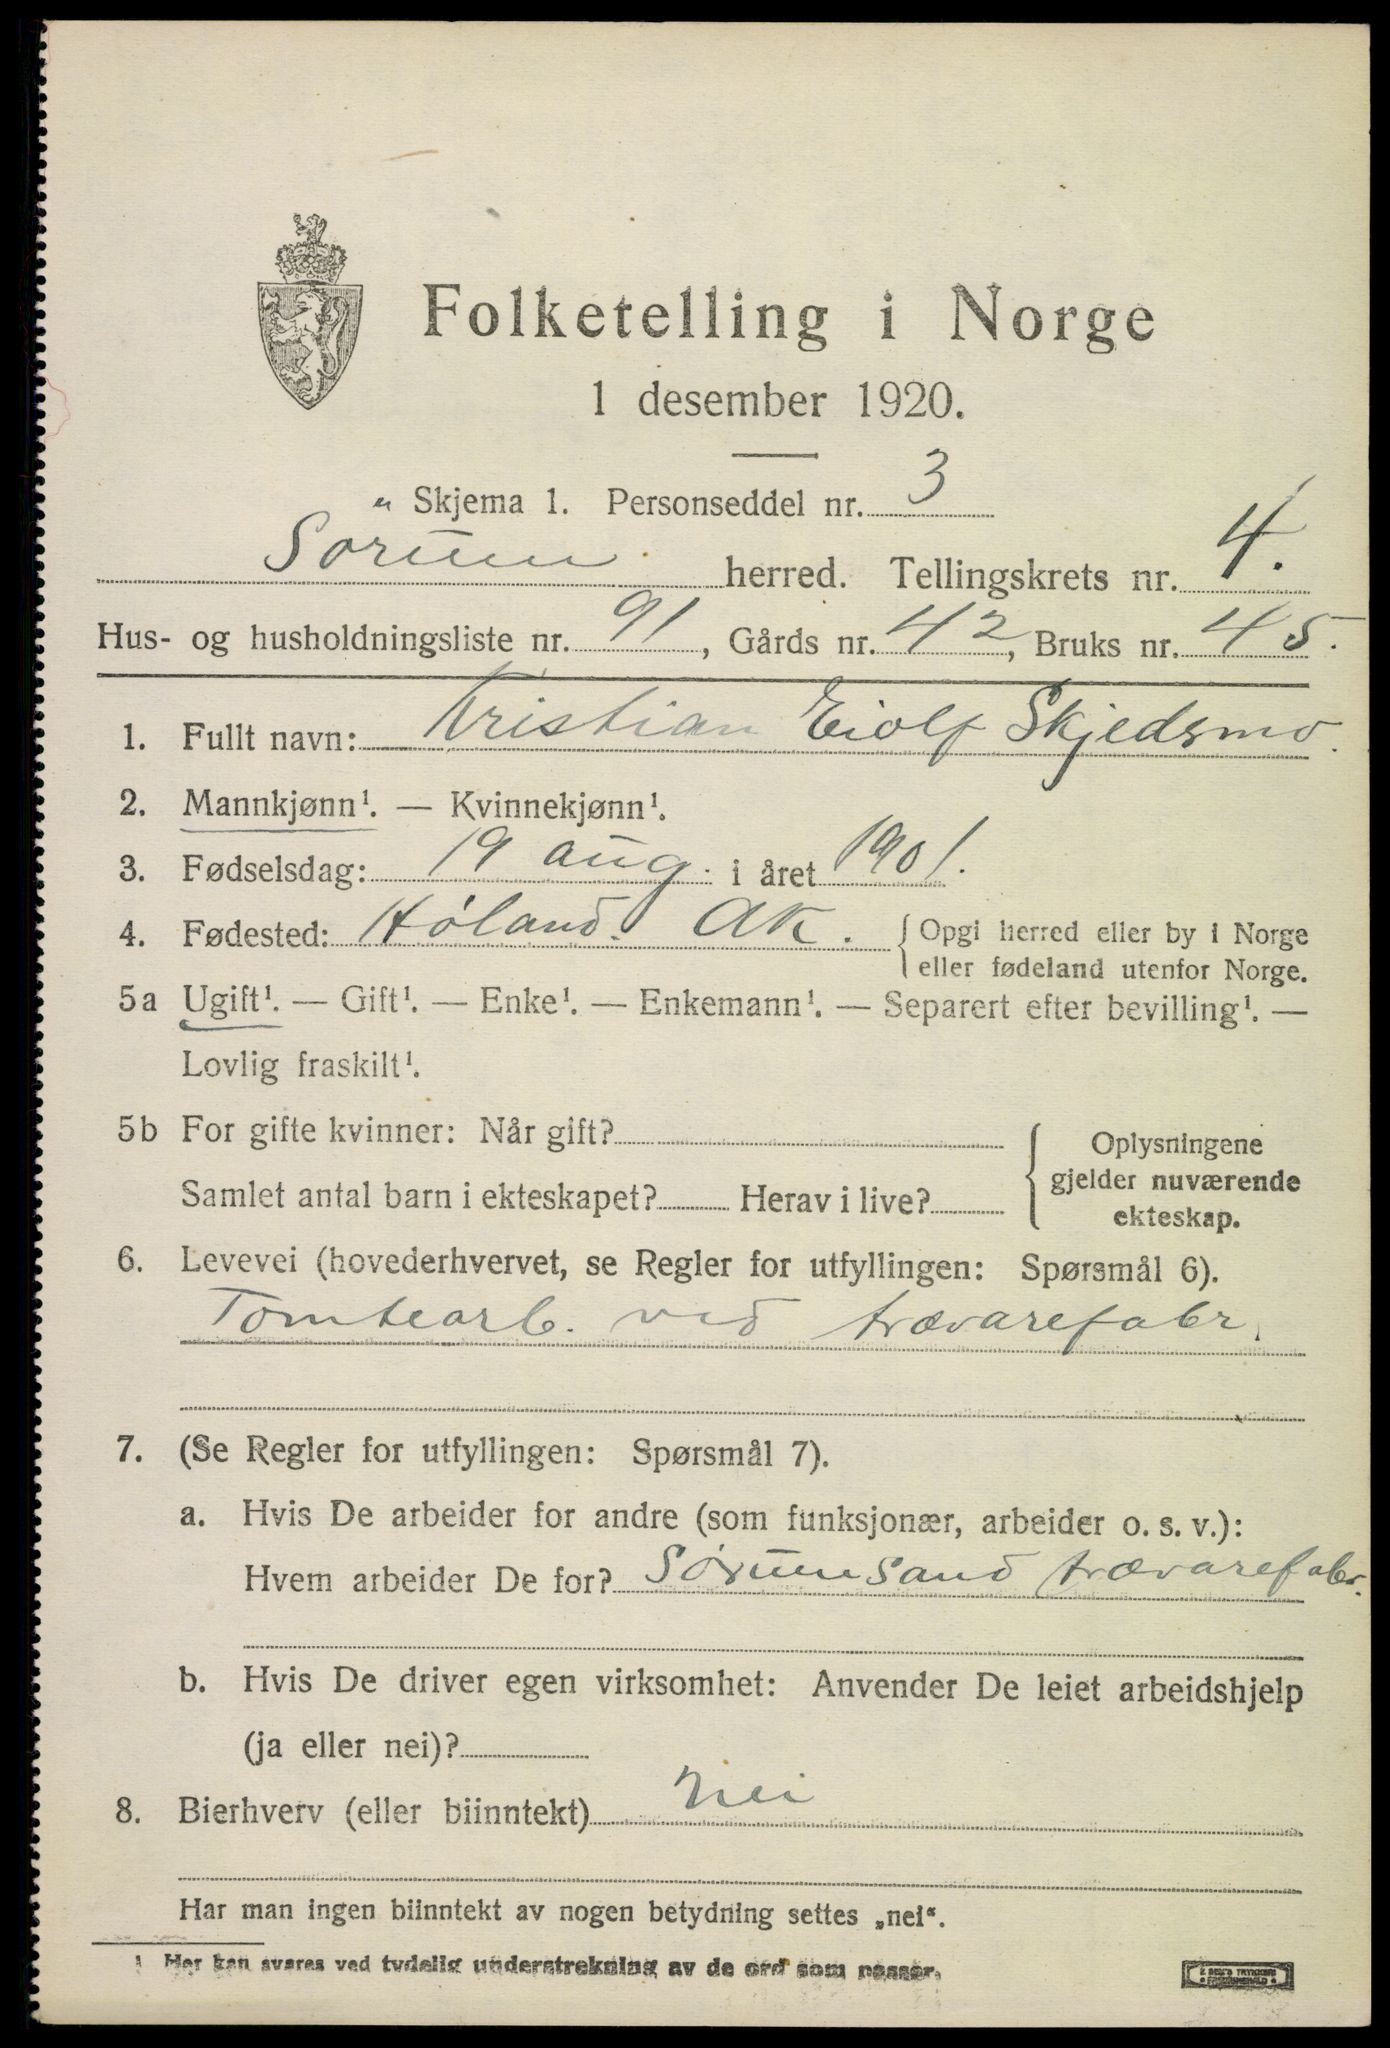 Folketelling i Norge
1 desember 1920.
„ Skjema 1. Personseddel nr. 3
Sørum herred. Tellingskrets nr. 4.
Hus- og husholdningsliste nr. 91, Gårds nr. 42, Bruks nr. 45.
1. Fullt navn: Kristian Eiolf Skjedsmo.
2. Mannkjønn¹. — Kvinnekjønn¹.
3. Fødselsdag: 19 aug. i året 1901.
4. Fødested: Høland. Ak. { Opgi herred eller by i Norge
eller fødeland utenfor Norge.
5a Ugift¹. — Gift¹. — Enke¹. — Enkemann¹. — Separert efter bevilling¹. —
Lovlig fraskilt¹.
5b For gifte kvinner: Når gift?
Samlet antal barn i ekteskapet? Herav i live?
Oplysningene
gjelder nuværende
ekteskap.
6. Levevei (hovederhvervet, se Regler for utfyllingen: Spørsmål 6).
Tomtearb. ved trævarefabr.
7. (Se Regler for utfyllingen: Spørsmål 7).
a. Hvis De arbeider for andre (som funksjonær, arbeider o. s. v.):
Hvem arbeider De for? Sørumsand trævarefabr.
b. Hvis De driver egen virksomhet: Anvender De leiet arbeidshjelp
(ja eller nei)?
8. Bierhverv (eller biinntekt) Nei
Har man ingen biinntekt av nogen betydning settes „nei“.
1 Her kan svares ved tydelig understrekning av de ord som passer.